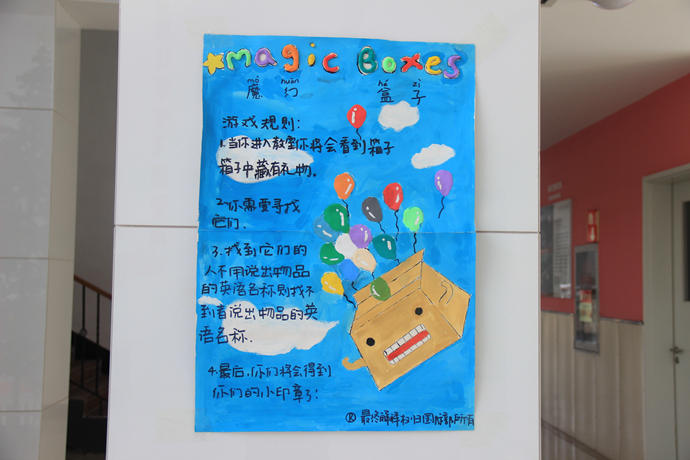 magic Boxes
mó huàn hé zǐ
魔幻 盒子
游戏规则:
1.当你进入教室你将会看到箱子
箱子中藏有礼物。
2.你需要寻找
它们.
3.找到它们的
人不用说出物品
的英语名称则找不
到者说出物品的英
语名称.
4.最后,你们将会得到
你们的小印章了:
® 最终解释权归国际部所有